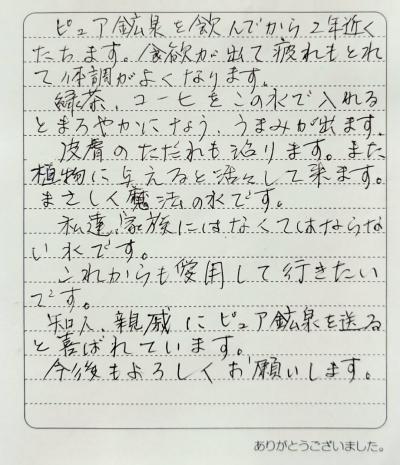 ピュア鉱泉を飲んでから2年近く
たちます。食欲が出て疲れもとれ
て体調がよくなります。
緑茶、コーヒをこの水で入れる
とまろやかになう、うまみが出ます。
皮膚のただれも治ります。また
植物に与えると活々して来ます。
まさしく魔法の水です。
私達、家族にはなくてはならな
い水です。
これからも愛用して行きたい
です。
知人、親戚にピュア鉱泉を送る
と喜ばれています。
今後もよろしくお願いします。
ありがとうございました。